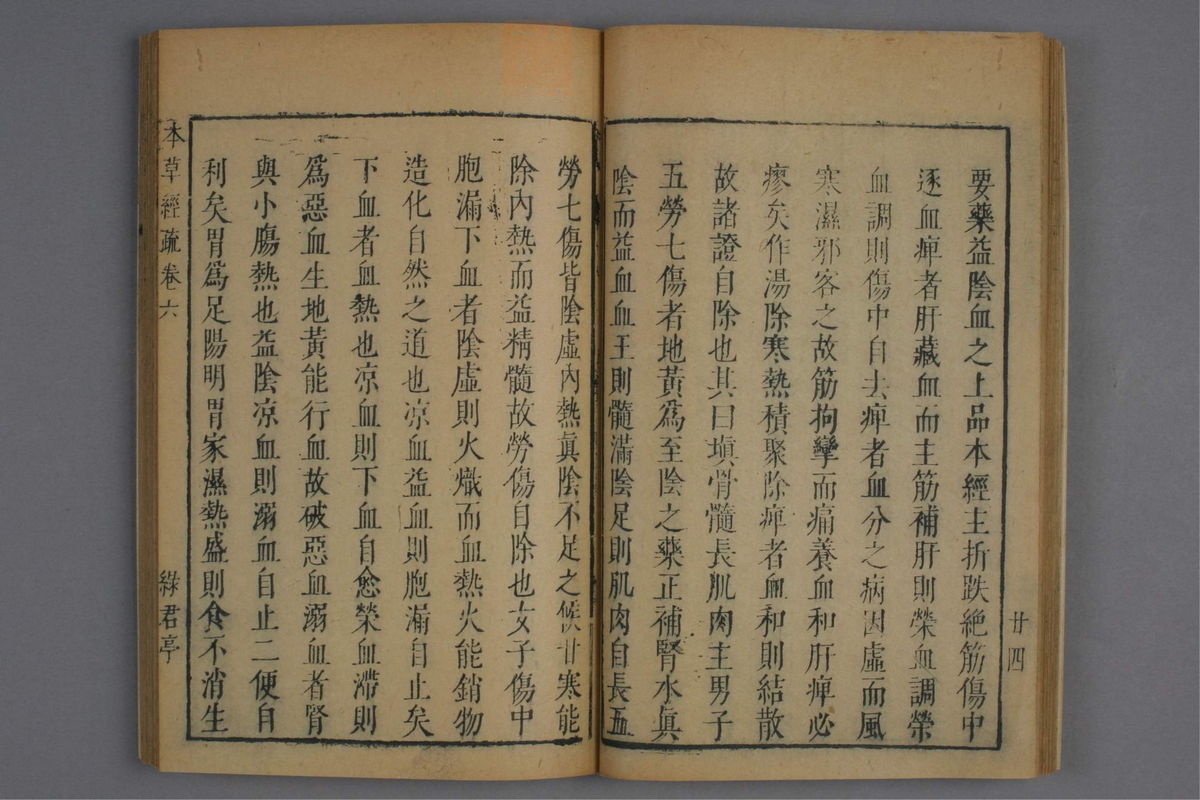 要藥益陰血之上品本經主折跌絶筋傷中
逐血痺者肝藏血而主筋補肝則榮血調榮
血調則傷中自去痺者血分之病因虛而風
寒濕邪客之故筋拘攣而痛養血和肝痺必
瘳矣作湯除寒熱積聚除痺者血和則結散
故諸證自除也其曰塡骨髓長肌肉主男子
五勞七傷者地黃爲至陰之藥正補腎水眞
陰而益血血王則髓滿陰足則肌肉自長五
廿四
勞七傷皆陰虛內熱眞陰不足之候甘寒能
除內熱而益精髓故勞傷自除也女子傷中
胞漏下血者陰虛則火熾而血熱火能銷物
造化自然之道也凉血益血則胞漏自止矣
下血者血熱也凉血則下血自愈榮血滯則
爲惡血生地黃能行血故破惡血溺血者腎
與小膓熱也益陰凉血則溺血自止二便自
利矣胃爲足陽明胃家濕熱盛則食不消生
本草經疏卷六
綠君亭